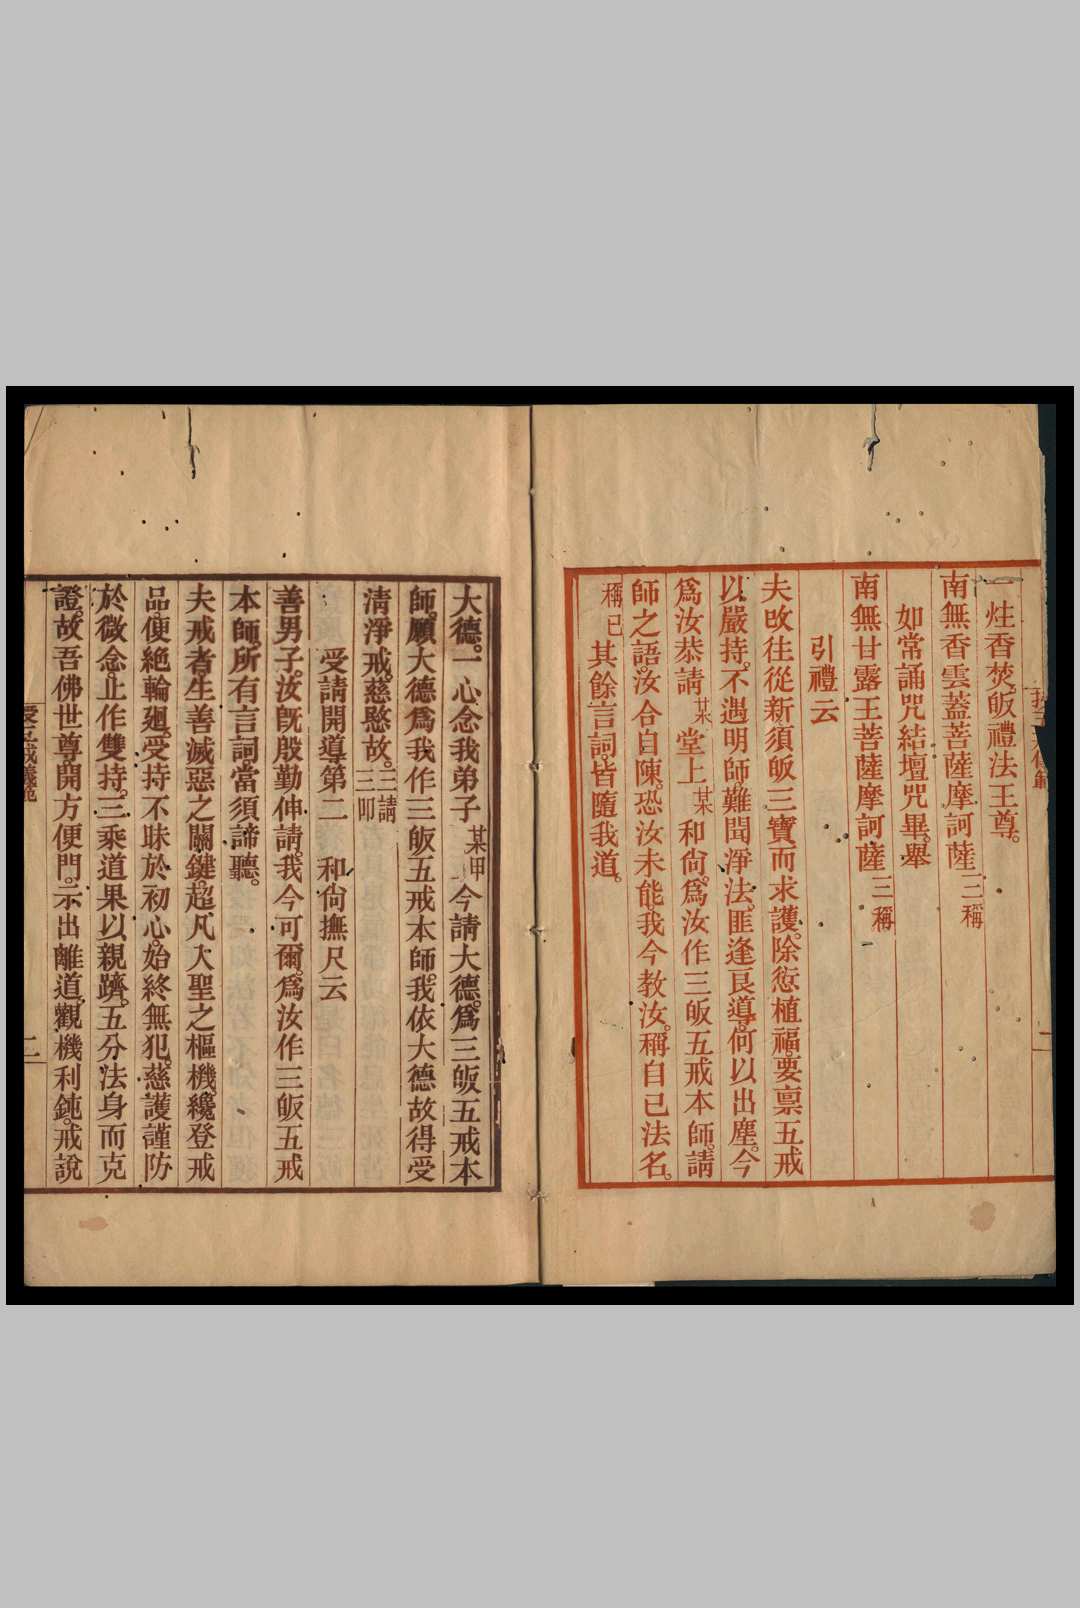 一炷香焚。皈禮法王尊。
南無香雲蓋菩薩摩訶薩三稱
如常誦咒結壇咒畢。舉
南無甘露王菩薩摩訶薩三稱
引禮云
夫改往從新。須皈三寶。而求護。除愆植福。要禀五戒
以嚴持。不遇明師。難聞淨法。匪逢良導。何以出塵。今
爲汝恭請某堂上某和尙。爲汝作三皈五戒本師。請
師之語。汝合自陳。恐汝未能。我今教汝。稱自己法名。
稱已其餘言詞。皆隨我道。
二
大德。一心念我弟子某甲今請大德。爲三皈五戒本
師。願大德爲我作三皈五戒本師。我依大德故。得受
清淨戒。慈愍故。三請三叩
受請開導第二 和尙撫尺云
善男子。汝旣殷勤伸請。我今可爾。爲汝作三皈五戒
本師。所有言詞。當須諦聽。
夫戒者。生善滅惡之關鍵。超凡入聖之樞機。纔登戒
品。便絶輪廻。受持不昧於初心。始終無犯。慈護謹防
於微念。止作雙持。三乘道果以親躋。五分法身而克
證。故吾佛世尊。開方便門。示出離道。觀機利鈍。戒說
受五戒儀範
二